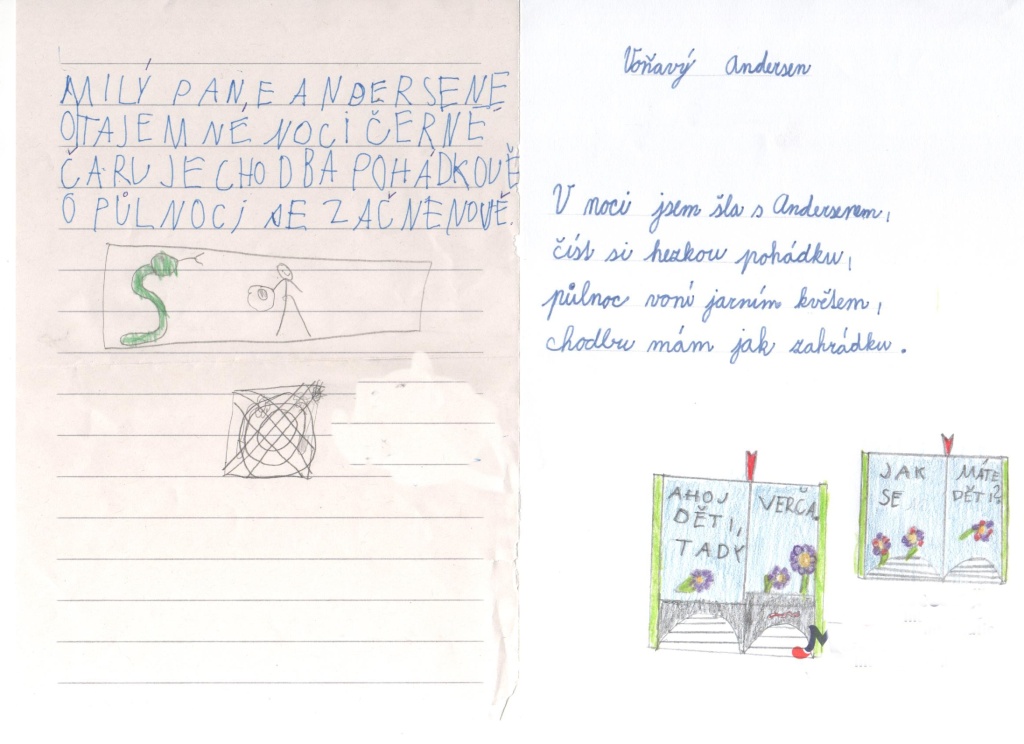 MILÝ PANE ANDERSENE
O TAJEMNÉ NOCI ČERNÉ
ČARUJE CHODBA POHÁDKOVĚ
O PŮLNOCI SE ZAČNE NOVĚ.
Voňavý Andersen
V noci jsem šla s Andersenem,
číst si hezkou pohádku,
půlnoc voní jarním květem,
chodbu mám jak zahrádku.
AHOJ
DĚTI,
TADY
VERČA.
JAK
SE
MÁTE
DĚTI?